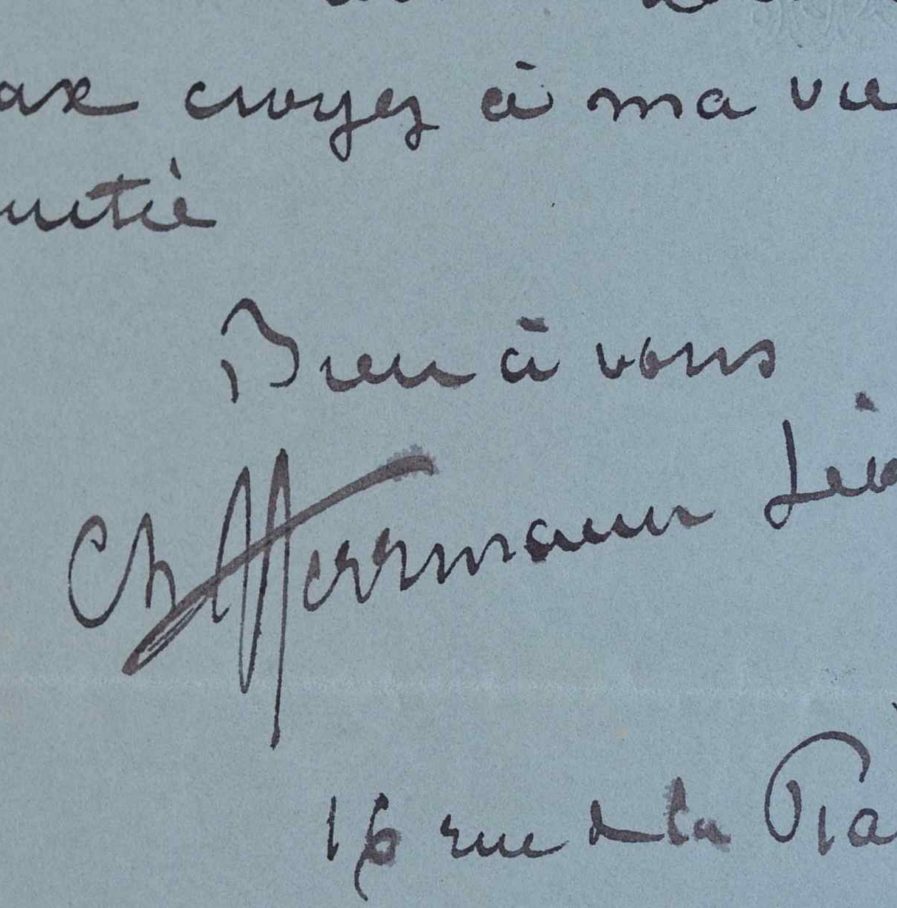 croyez à ma vie
Bien à vous
Ch Herrmann Lé
16 rue de la